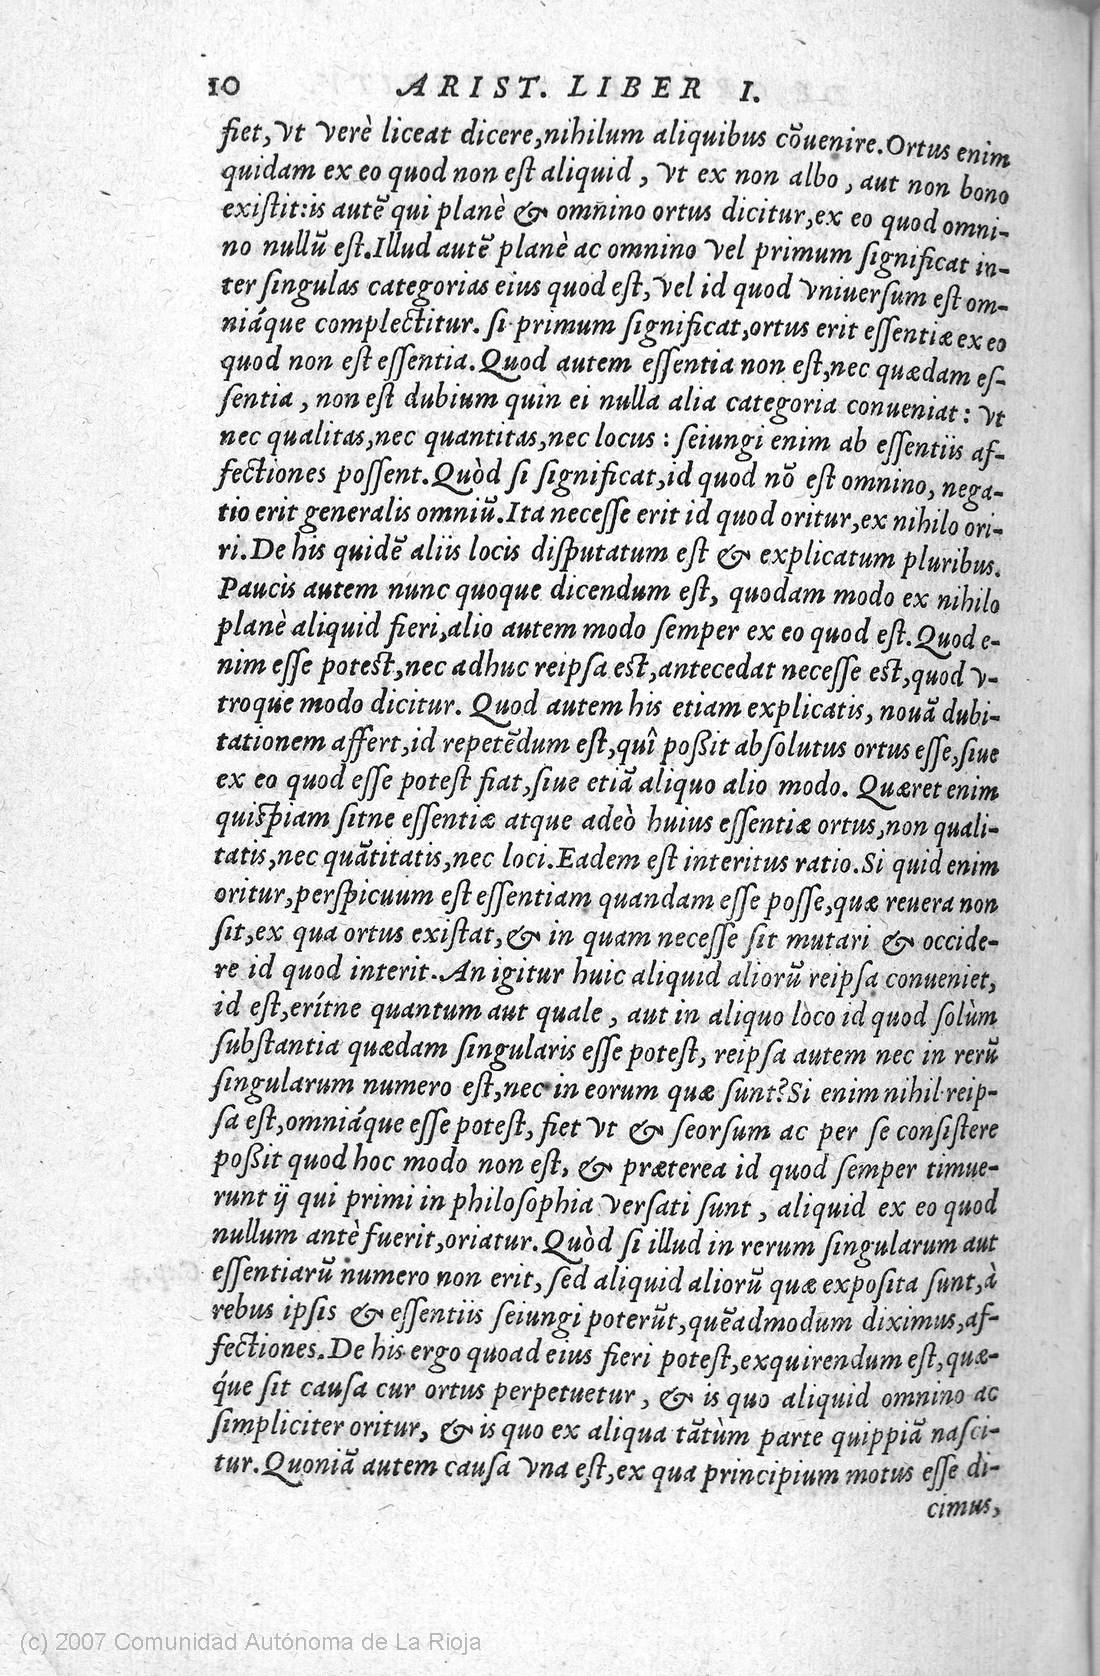 10 ARIST. LIBER I.
fiet, vt verè liceat dicere, nihilum aliquibus cōuenire. Ortus enim
quidam ex eo quod non est aliquid, vt ex non albo, aut non bono
existit: is autē qui planè & omnino ortus dicitur, ex eo quod omni-
no nullū est. Illud autē planè ac omnino vel primum significat in-
ter singulas categorias eius quod est, vel id quod vniuersum est om-
niáque complectitur. si primum significat, ortus erit essentiæ ex eo
quod non est essentia. Quod autem essentia non est, nec quædam es-
sentia, non est dubium quin ei nulla alia categoria conueniat: vt
nec qualitas, nec quantitas, nec locus: seiungi enim ab essentiis af-
fectiones possent. Quòd si significat, id quod nō est omnino, nega-
tio erit generalis omniū. Ita necesse erit id quod oritur, ex nihilo ori-
ri. De his quidē aliis locis disputatum est & explicatum pluribus.
Paucis autem nunc quoque dicendum est, quodam modo ex nihilo
planè aliquid fieri, alio autem modo semper ex eo quod est. Quod e-
nim esse potest, nec adhuc reipsa est, antecedat necesse est, quod v-
troque modo dicitur. Quod autem his etiam explicatis, nouā dubi-
tationem affert, id repetēdum est, quî poßit absolutus ortus esse, siue
ex eo quod esse potest fiat, siue etiā aliquo alio modo. Quæret enim
quispiam sitne essentiæ atque adeò huius essentiæ ortus, non quali-
tatis, nec quātitatis, nec loci. Eadem est interitus ratio. Si quid enim
oritur, perspicuum est essentiam quandam esse posse, quæ reuera non
sit, ex qua ortus existat, & in quam necesse sit mutari & occide-
re id quod interit. An igitur huic aliquid aliorū reipsa conueniet,
id est, erítne quantum aut quale, aut in aliquo loco id quod solùm
substantia quædam singularis esse potest, reipsa autem nec in rerū
singularum numero est, nec in eorum quæ sunt? Si enim nihil reip-
sa est, omniáque esse potest, fiet vt & seorsum ac per se consistere
poßit quod hoc modo non est, & præterea id quod semper timue-
runt ij qui primi in philosophia versati sunt, aliquid ex eo quod
nullum antè fuerit, oriatur. Quòd si illud in rerum singularum aut
essentiarū numero non erit, sed aliquid aliorū quæ exposita sunt, à
rebus ipsis & essentiis seiungi poterūt, quēadmodum diximus, af-
fectiones. De his ergo quoad eius fieri potest, exquirendum est, quæ-
q́ue sit causa cur ortus perpetuetur, & is quo aliquid omnino ac
simpliciter oritur, & is quo ex aliqua tātùm parte quippiā nasci-
tur. Quoniā autem causa vna est, ex qua principium motus esse di-
cimus,
(c) 2007 Comunidad Autónoma de La Rioja